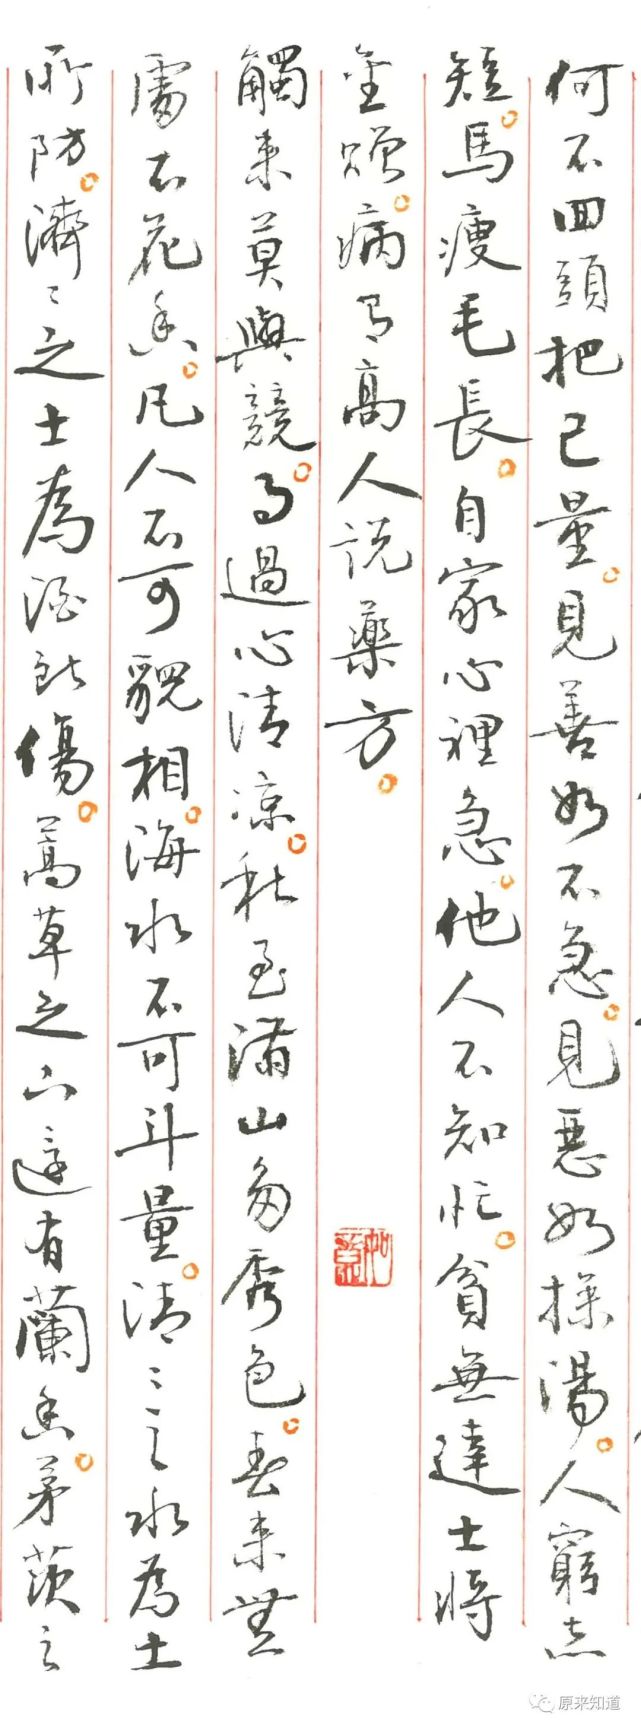 何不回頭把己量。見善如不急。見惡如探湯。人窮志
短。馬瘦毛長。自家心裡急。他人不知忙。貧無達士將
金贈。病有高人說藥方。
觸來莫與競。事過心清凉。秋至滿山多秀色。春來無
處不花香。凡人不可貌相。海水不可斗量。清々之水為土
所防。濟々之士為酒所傷。蒿草之下還有蘭香。茅茨之
原来知道